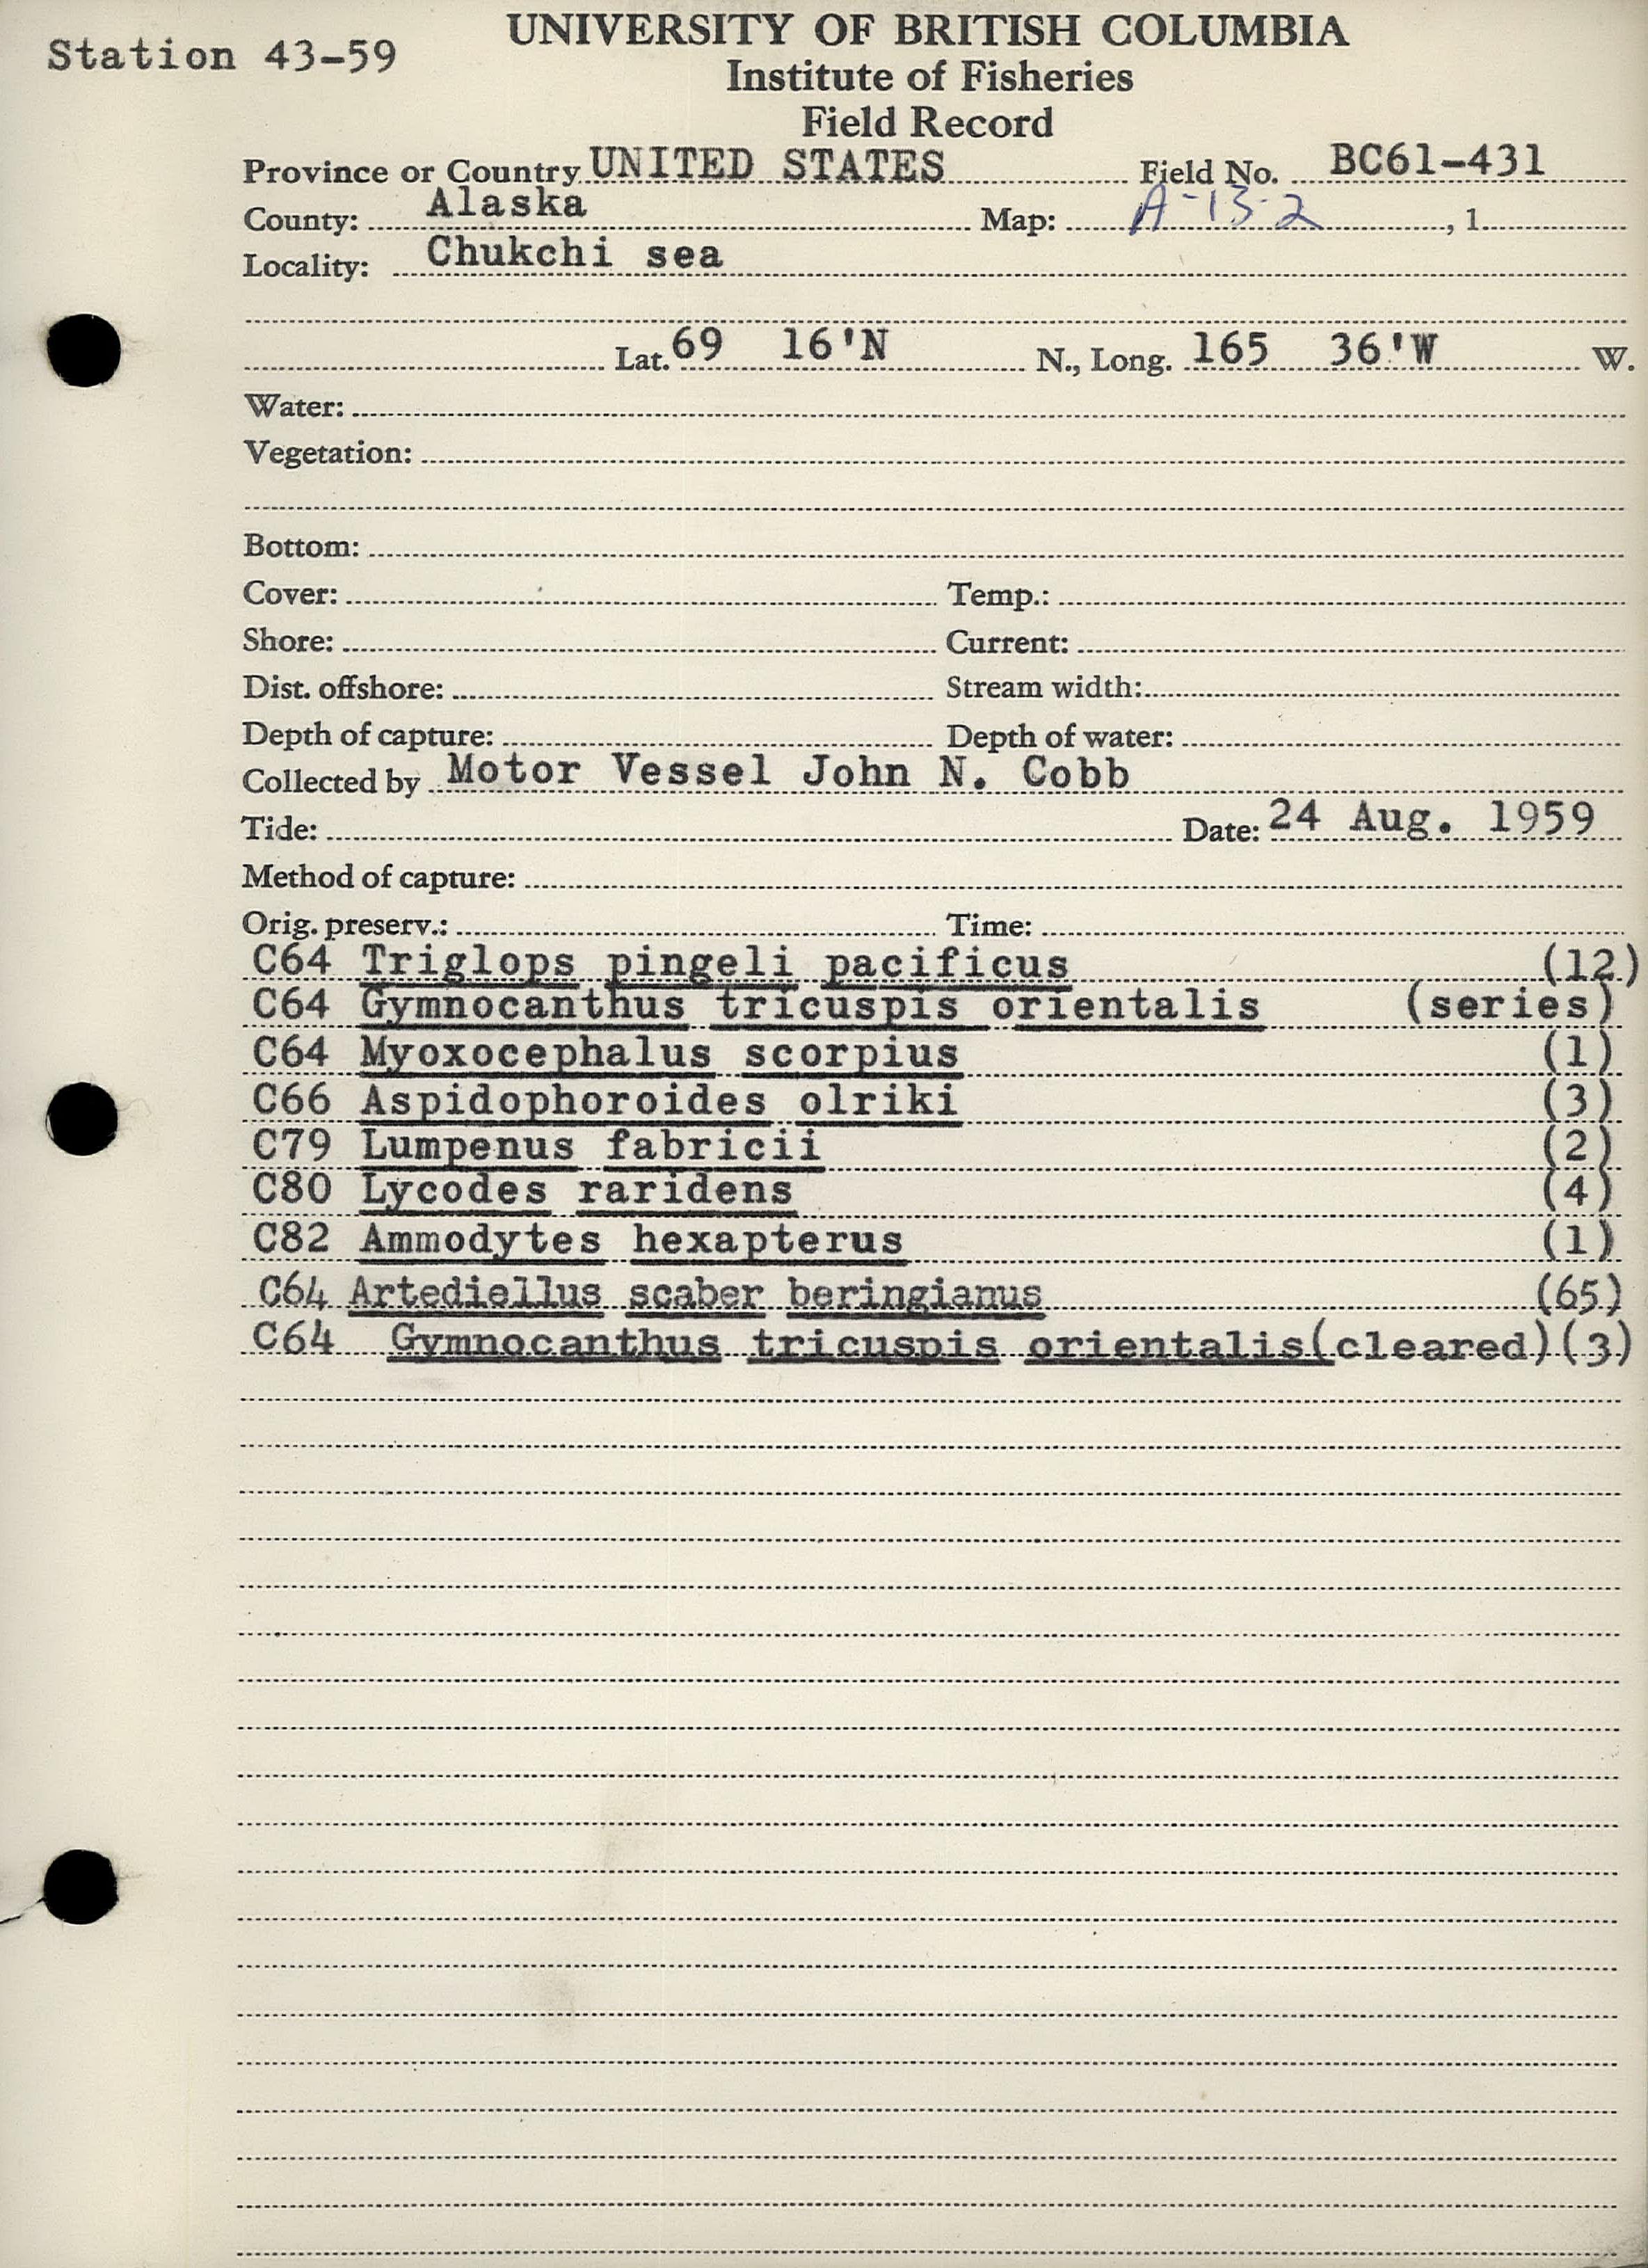 Station 43-59
UNIVERSITY OF BRITISH COLUMBIA
Institute of Fisheries
Field Record
Province or Country UNITED STATES Field No. BC61-431
County: Alaska Map: A-13-2, 1
Locality: Chukchi sea
Lat. 69 16'N N., Long. 165 36'W W.
Water:
Vegetation:
Bottom:
Cover: Temp.:
Shore: Current:
Dist. offshore: Stream width:
Depth of capture: Depth of water:
Collected by Motor Vessel John N. Cobb
Tide: Date: 24 Aug. 1959
Method of capture:
Orig. preserv.: Time:
C64 Triglops pingeli pacificus (12)
C64 Gymnocanthus tricuspis orientalis (series)
C64 Myoxocephalus scorpius (1)
C66 Aspidophoroides olriki (3)
C79 Lumpenus fabricii (2)
C80 Lycodes raridens (4)
C82 Ammodytes hexapterus (1)
C64 Artediellus scaber beringianus (65)
C64 Gymnocanthus tricuspis orientalis(cleared)(3)